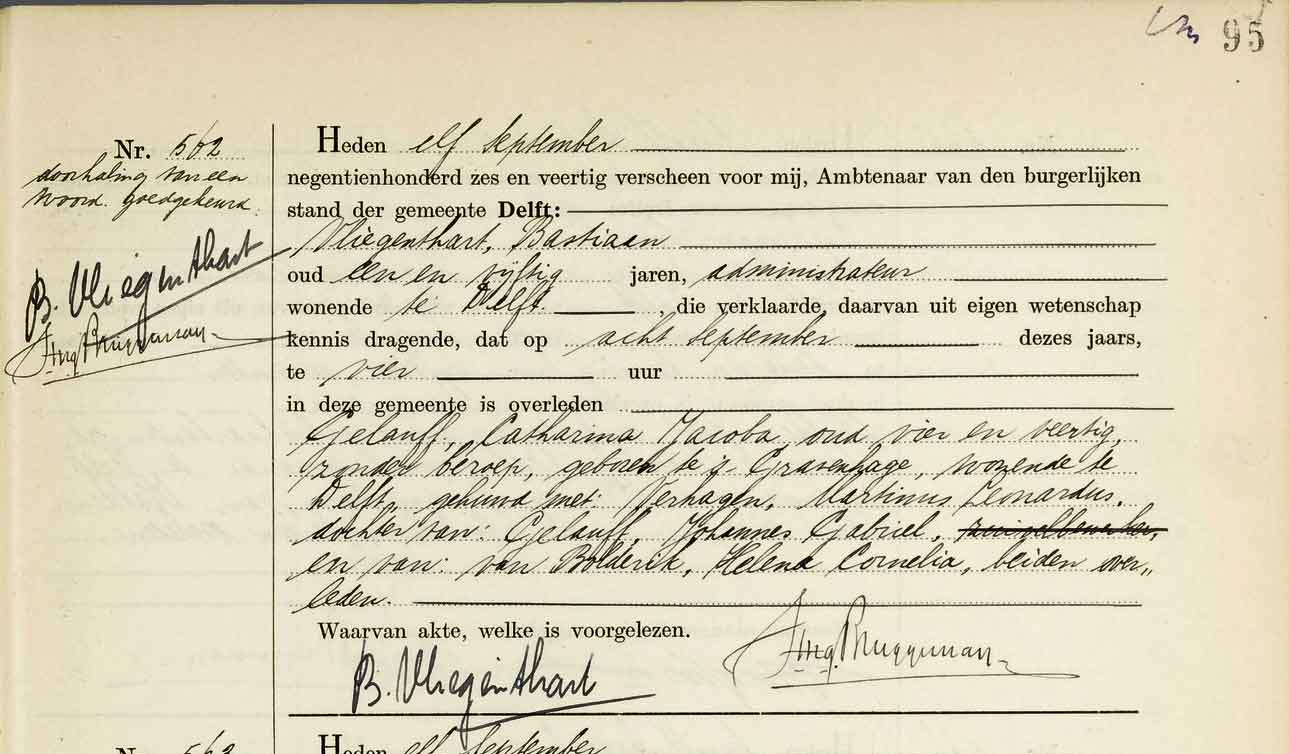 95
Nr. 562
doorhaling van een
woord goedgekeurd.
B. Vliegenthart
Bruggeman
Heden elf September
negentienhonderd zes en veertig verscheen voor mij, Ambtenaar van den burgerlijken
stand der gemeente Delft:
Vliegenthart, Bastiaan
oud een en vijftig jaren, administrateur
wonende te Delft, die verklaarde, daarvan uit eigen wetenschap
kennis dragende, dat op acht September dezes jaars,
te vier uur
in deze gemeente is overleden
Gelauff, Catharina Jacoba, oud vier en veertig,
zonder beroep, geboren te 's Gravenhage, wonende te
Delft, gehuwd met: Verhagen, Martinus Leonardus,
dochter van: Gelauff, Johannes Gabriel,
en van: van Bolderik, Helena Cornelia, beiden over„
leden.
Waarvan akte, welke is voorgelezen.
B. Vliegenthart
Bruggeman
Nr. 563
Heden elf September